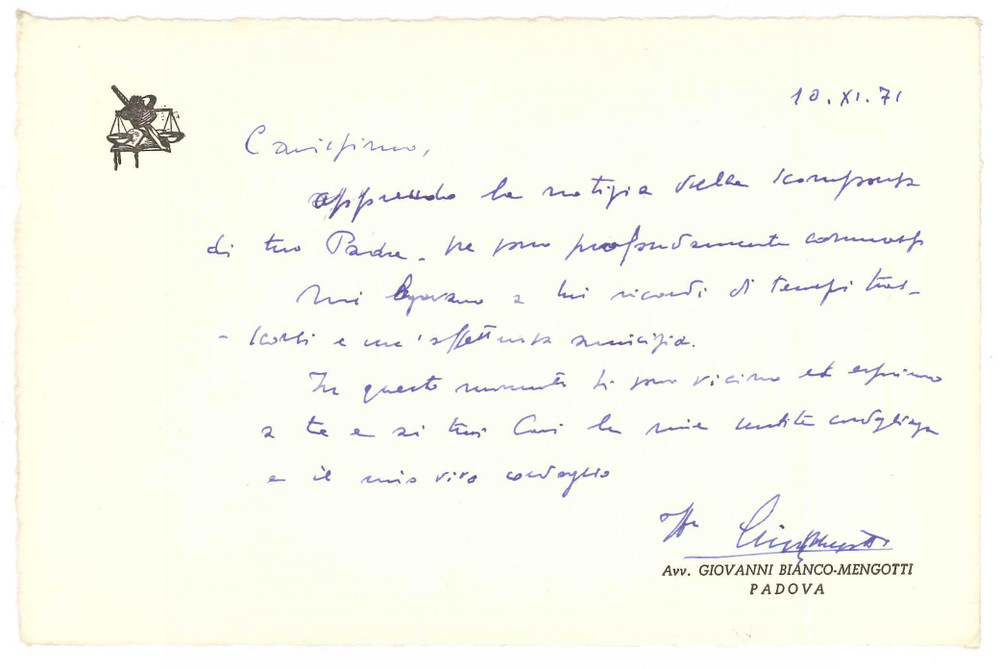 10.XI.71
Carissimo,
apprendo la notizia della scomparsa
di tuo Padre. ne sono profondamente commosso
Mi legavano a lui ricordi di tempi tra-
- scorsi e un'affettuosa amicizia.
In questo momento ti sono vicino ed esprimo
a te e ai tuoi Cari le mie sentite condoglianze
e il mio vivo cordoglio
aff
Avv. GIOVANNI BIANCO-MENGOTTI
PADOVA